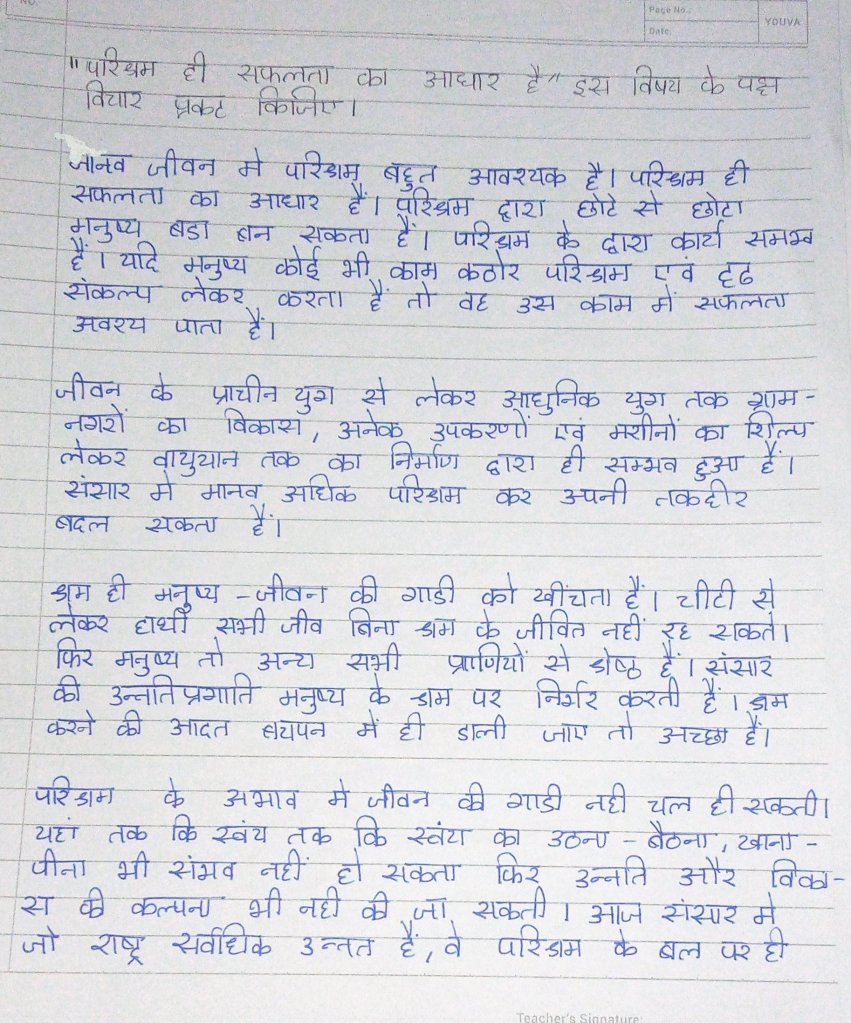 Page No.:
YOUVA
Date:
"परिश्रम ही सफलता का आधार है" इस विषय के पक्ष
विचार प्रकट किजिए।
मानव जीवन मे परिश्रम बहुत आवश्यक है। परिश्रम ही
सफलता का आधार हैं। परिश्रम द्वारा छोटे से छोटा
मनुष्य बडा बन सकता हैं। परिश्रम के द्वारा कार्य समभव
हैं। यदि मनुष्य कोई भी काम कठोर परिश्रम एवं दृढ
संकल्प लेकर करता हैं तो वह उस काम में सफलता
अवश्य पाता हैं।
जीवन के प्राचीन युग से लेकर आधुनिक युग तक ग्राम-
नगरों का विकास, अनेक उपकरणों एवं मशीनों का शिल्प
लेकर वायुयान तक का निर्माण द्वारा ही सम्भव हुआ हैं।
संसार मे मानव अधिक परिश्रम कर अपनी तकदीर
बदल सकता हैं।
श्रम ही मनुष्य-जीवन की गाडी को खींचता हैं। चीटी से
लेकर हाथी सभी जीव बिना श्रम के जीवित नहीं रह सकते।
फिर मनुष्य तो अन्य सभी प्राणियों से श्रेष्ठ हैं। संसार
की उन्नति प्रगाति मनुष्य के श्रम पर निर्भर करती हैं। श्रम
करने की आदत बचपन में ही डाली जाए तो अच्छा हैं।
परिश्रम के अभाव मे जीवन की गाडी नही चल ही सकती।
यहां तक कि स्वंय तक कि स्वंय का उठना-बैठना, खाना-
पीना भी संभव नहीं हो सकता फिर उन्नति और विका-
स की कल्पना भी नही की जा सकती। आज संसार मे
जो राष्ट्र सर्वाधिक उन्नत हैं, वे परिश्रम के बल पर ही
Teacher's Signature: